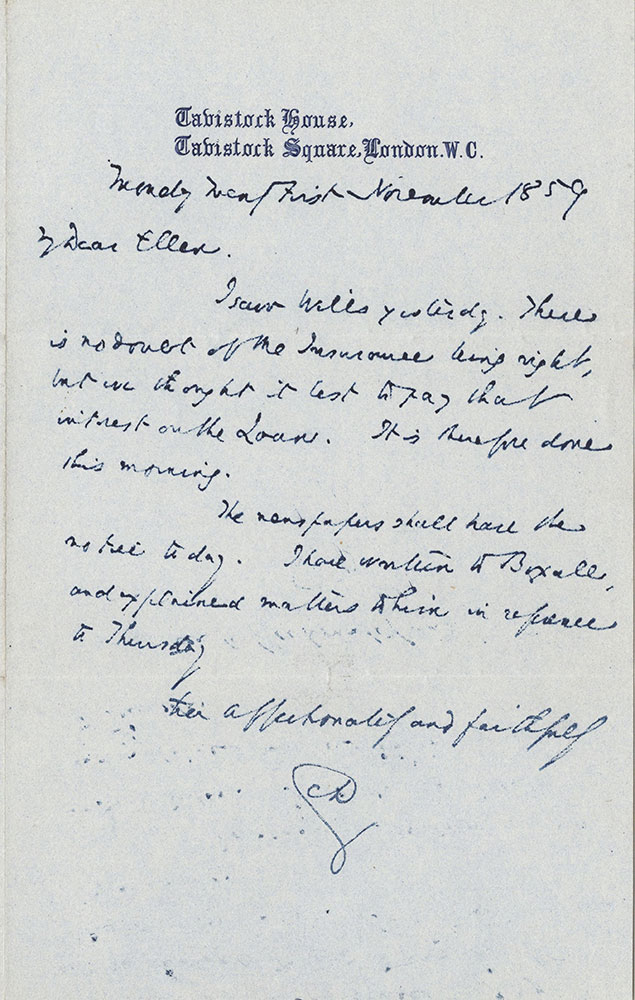 Tavistock House,
Tavistock Square, London. W.C.
Monday Twenty First November 1859
My Dear Ellen.
I saw Wills yesterday. There
is no doubt of the Insurance being right,
but we thought it best to pay that
interest on the Loan. It is therefore done
this morning.
The newspapers shall have the
notice today. I have written to Boxall,
and explained matters to him in reference
to Thursday
Ever affectionately and faithfully
CD